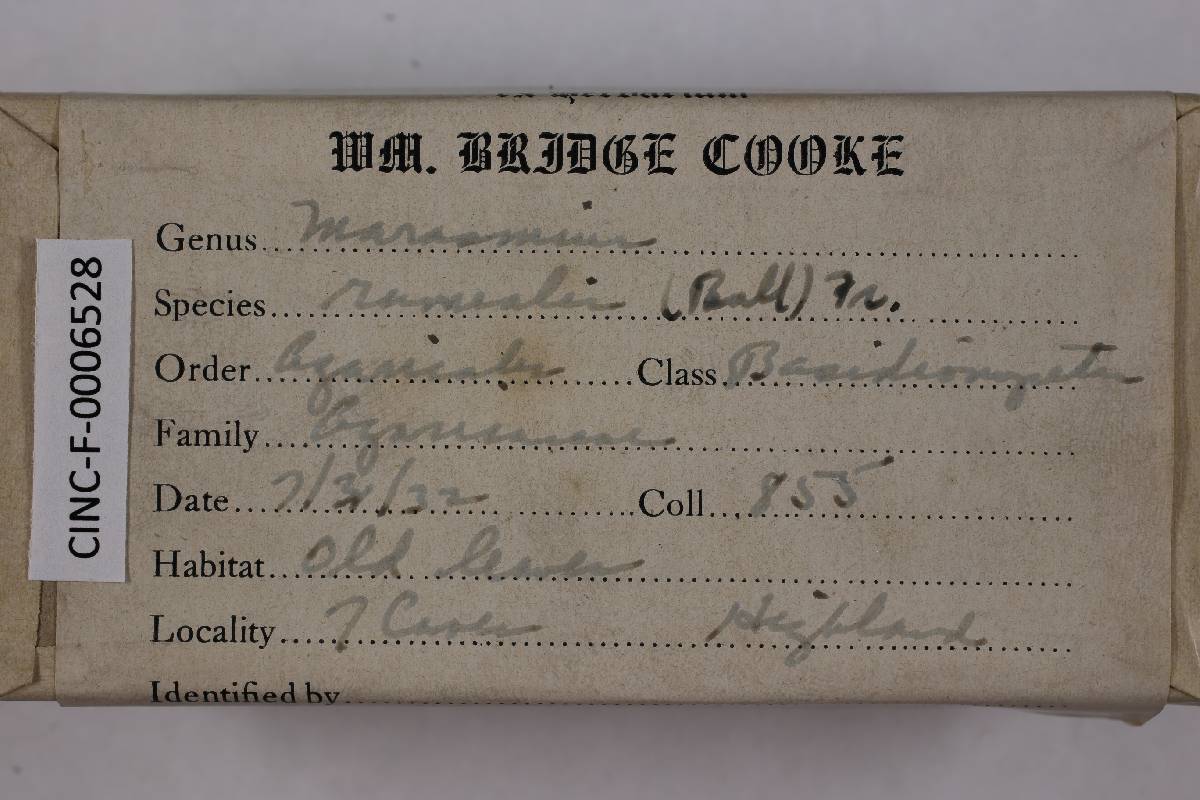 In Herbarium
WM. BRIDGE COOKE
Genus Marasmius
Species ramealis (Bull) Fr.
Order Agaricales Class Basidiomycetes
Family
Date 7/31/32 Coll. 855
Habitat Old leaves
Locality 7 Caves Highland
Identified by
CINC-F-0006528